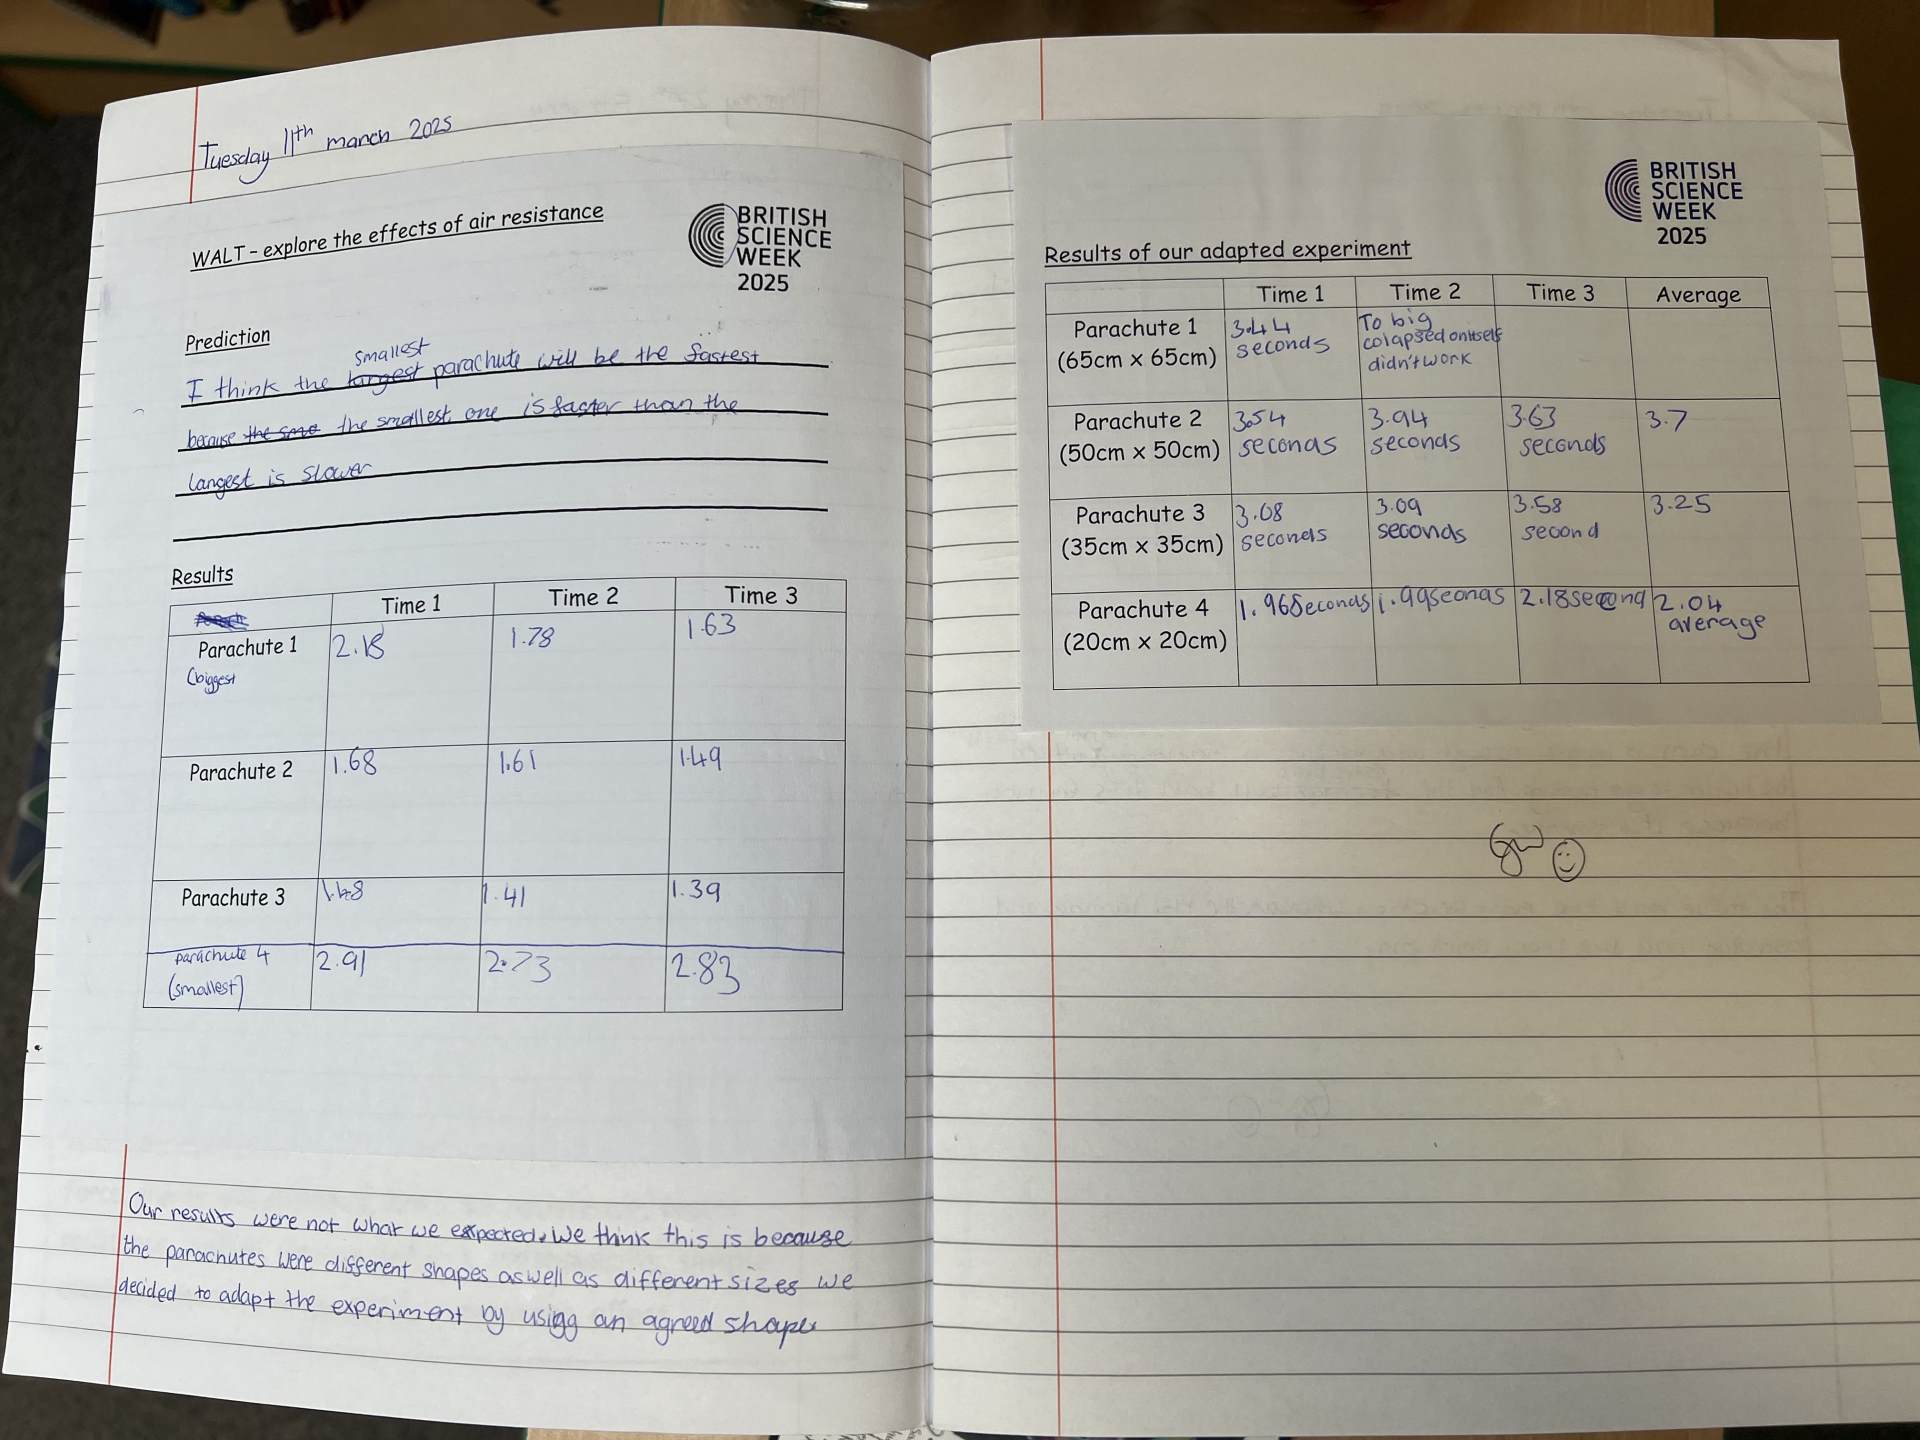 Tuesday 11th march 2025
WALT - explore the effects of air resistance
BRITISH
SCIENCE
WEEK
2025
Prediction
smallest
I think the largest parachute will be the fastest
because the sma the smallest one is faster than the
largest is slower
Results
Time 1 Time 2 Time 3
Parachute 1 2.18 1.78 1.63
(biggest
Parachute 2 1.68 1.61 1.49
Parachute 3 1.48 1.41 1.39
parachute 4 2.91 2.73 2.83
(smallest)
Our results were not what we expected. We think this is because
the parachutes were different shapes aswell as different sizes we
decided to adapt the experiment by usigg an agreed shape
BRITISH
SCIENCE
WEEK
2025
Results of our adapted experiment
Time 1 Time 2 Time 3 Average
Parachute 1 3.44 To big
(65cm x 65cm) seconds colapsed onitself
didn't work
Parachute 2 3.54 3.94 3.63 3.7
(50cm x 50cm) seconds seconds seconds
Parachute 3 3.08 3.09 3.58 3.25
(35cm x 35cm) seconds seconds second
Parachute 4 1.96seconds 1.99seconds 2.18second 2.04
(20cm x 20cm) average